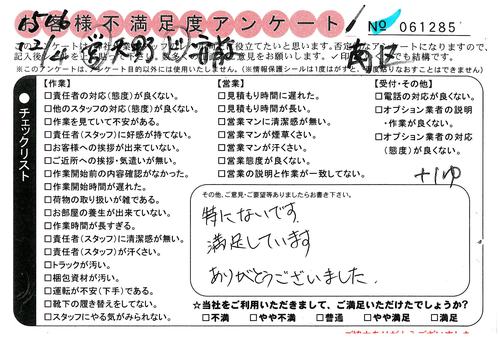 お客様不満足度アンケート
No 061285
12/4
南区
チェックリスト
【作業】
□責任者の対応(態度)が良くない。
□他のスタッフの対応(態度)が良くない。
□作業を見ていて不安がある。
□責任者(スタッフ)に好感が持てない。
□お客様への挨拶が出来ていない。
□ご近所への挨拶・気遣いが無い。
□作業開始前の内容確認がなかった。
□作業開始時間が遅れた。
□荷物の取り扱いが雑である。
□お部屋の養生が出来ていない。
□作業時間が長すぎる。
□責任者(スタッフ)に清潔感が無い。
□責任者(スタッフ)が汗くさい。
□トラックが汚い。
□梱包資材が汚い。
□運転が不安(下手)である。
□靴下の履き替えをしてない。
□スタッフにやる気がみられない。
【営業】
□見積もり時間に遅れた。
□見積もり時間が長い。
□営業マンに清潔感が無い。
□営業マンが煙草くさい。
□営業マンが汗くさい。
□営業態度が良くない。
□営業の説明と作業が一致してない。
【受付・その他】
□電話の対応が良くない。
□オプション業者の説明
・作業が良くない。
□オプション業者の対応
(態度)が良くない。
その他、ご意見・ご要望等ありましたらお書き下さい。
特にないです。
満足しています
ありがとうございました.
☆当社をご利用いただきまして、ご満足いただけたでしょうか?
□不満 □やや不満 □普通 □やや満足 □満足